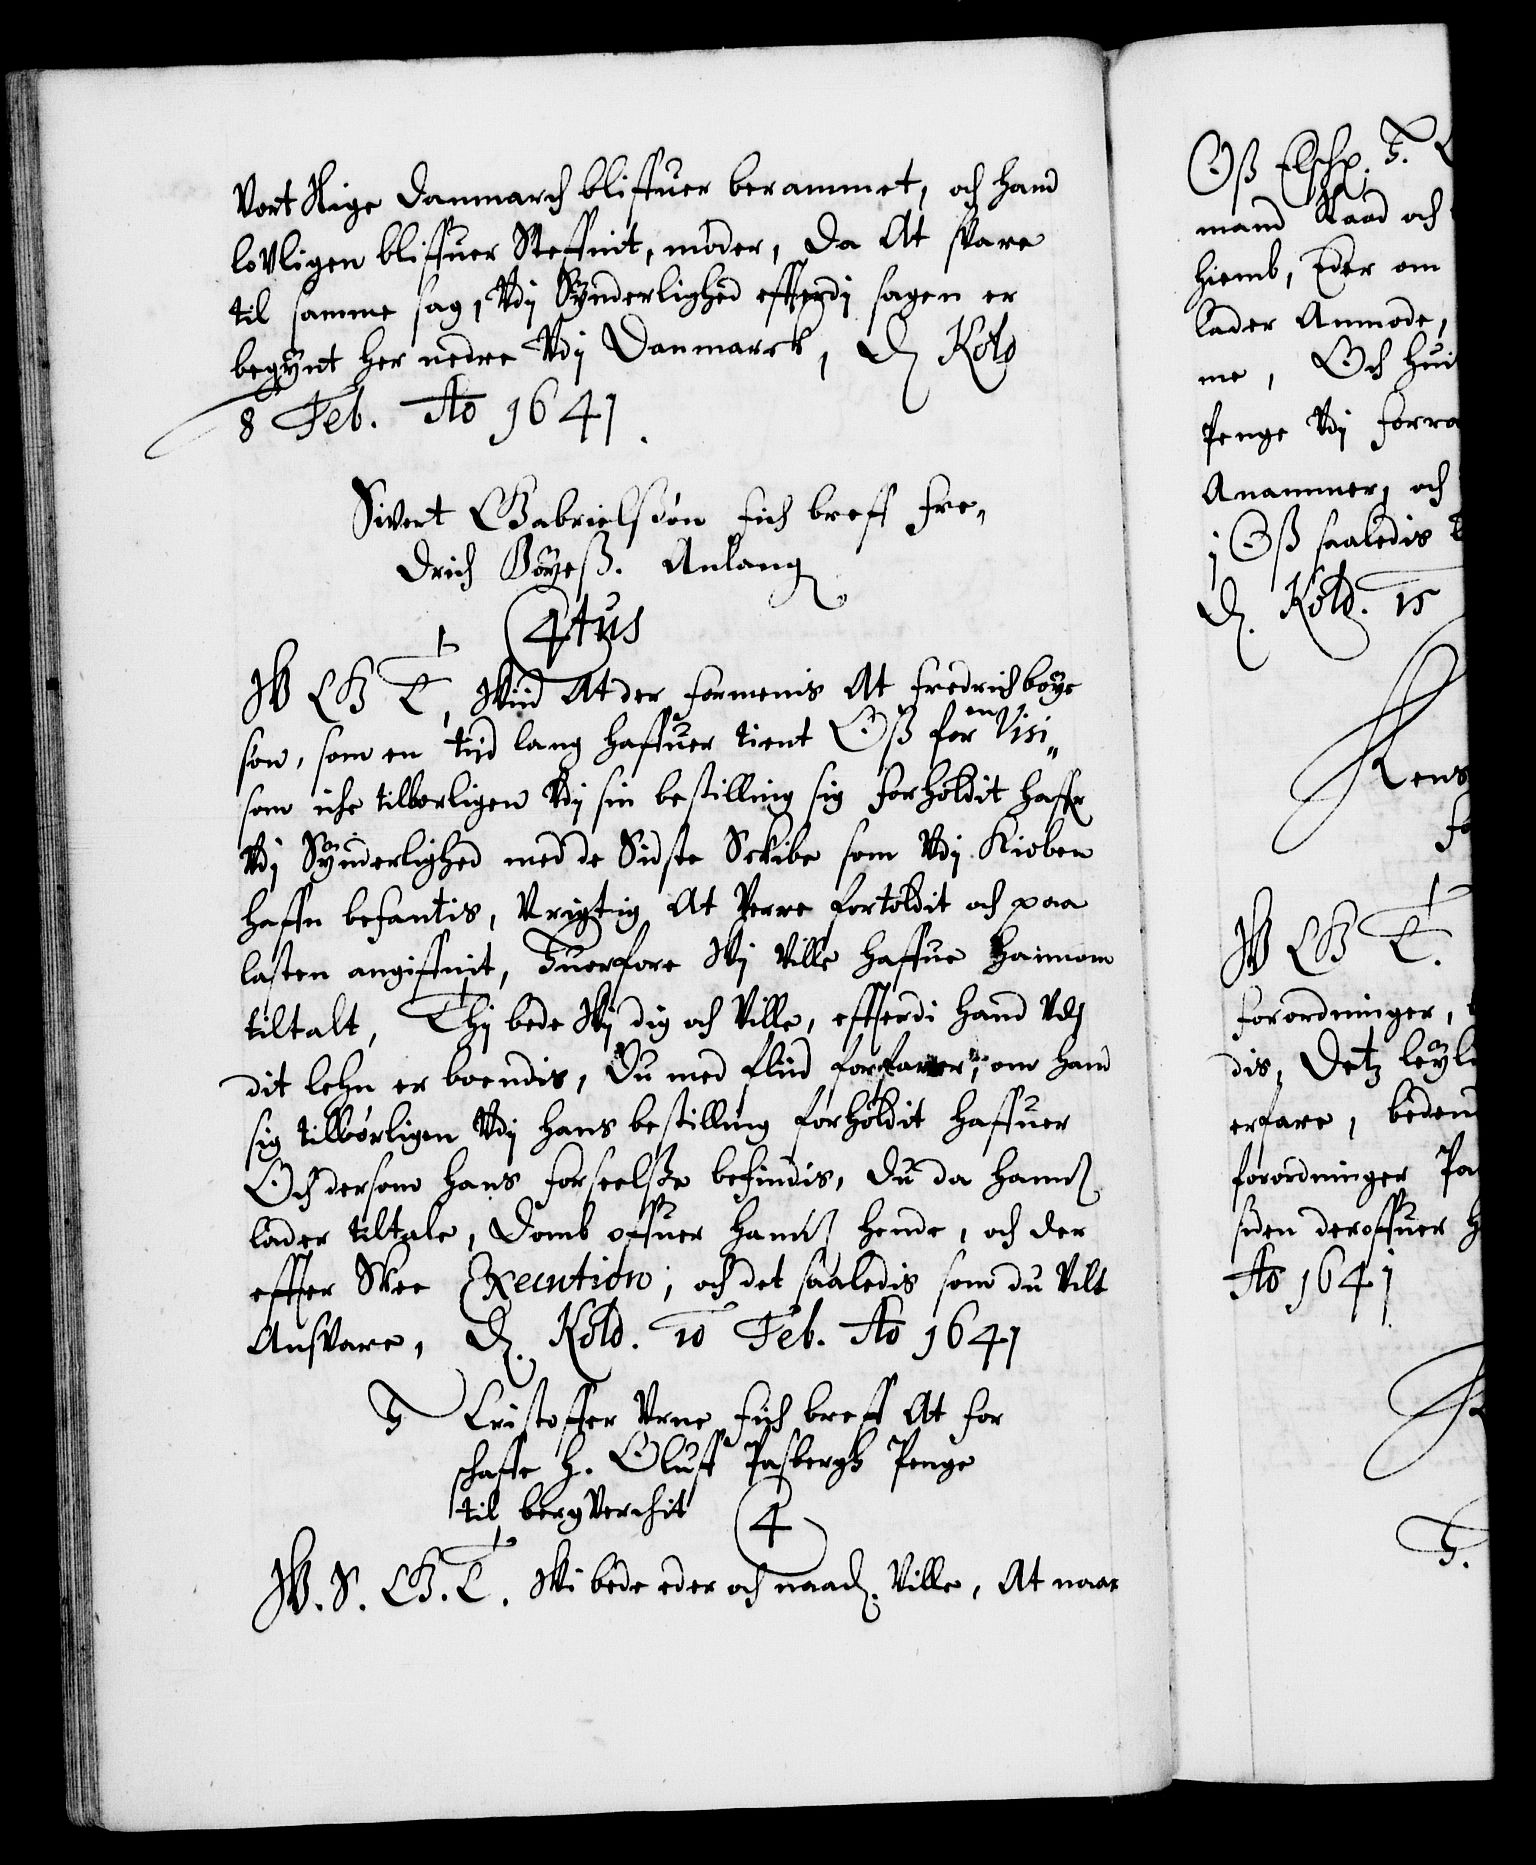 Vort Rige Danmarch bliffuer berammet, och hand
lovligen bliffuer Steffnit, møder, Da At svare
til samme sag, Vdj Synderlighed effterdj sagen er
begynt her nedre Vdj Danmarck, D Kold
8 Feb. Ao 1641.
Sivert Gabrielsøn fich breff Fre-
drich Bøyeß. Anlang
4tus
W G T, Wiid At der formenis At Fredrich bøye
søn, som en tijd lang haffuer tient Oß for en Visi-
som iche tilbørligen Vdj sin bestilling sig forholdit haffr
Vdj Synderlighed med de Sidste Schibe som Vdj Kiøben
haffn befantis, Vrigtig At Verre fortoldit och paa
lasten angiffuit, Huorfore Wj Ville haffue hannom
tiltalt, Thj bede Wj dig och Ville, effterdi hand Vdj
dit lehn er boendis, Du med fliid forfarer, om hand
sig tilbørligen Vdj hans bestilling forholdit haffuer
Och dersom hans forseelße befindis, Du da hannem
lader tiltale, Domb offuer hannem hende, och der
effter Skee Execution, och det saaledis som du Vilt
Ansvare, D. Kold. 10 Feb. Ao 1641
H Cristoffer Vrne fich breff At for
schaffe H. Oluff Pasbergh Penge
til bergverchit 4
W. S. G. T. Wi bede eder och naad. Ville, At naar
Oß Elschl. H.
mand Raad och
hiemb, Eder om
lader Anmode,
me, Och hui
Penge Vdj forra
Anammer, och
j Oß saaledis
D. Kold. 15
Rens
fo
W G T.
forordninger,
dis, Detz leyl
erfare, beden
forordninger Pa
siden deroffuer h
Ao 1641
H.